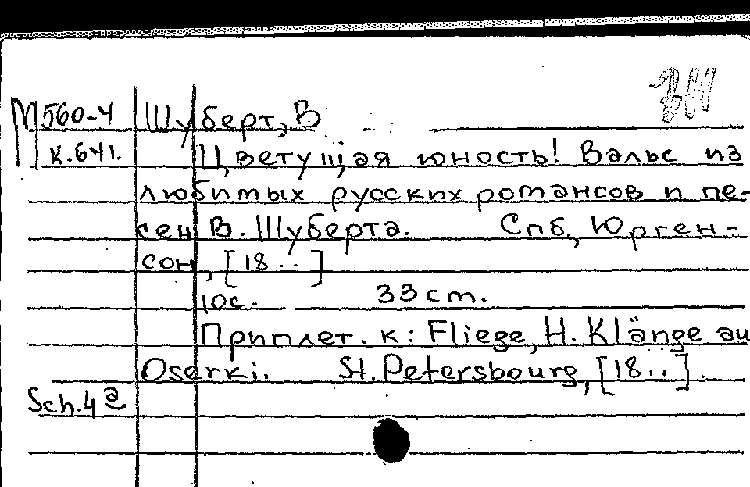 М560-4 Шуберт, В
к.641. Цветущая юность! Вальс из
любимых русских романсов и пе-
сен В. Шуберта. Спб, Юрген-
сон, [18..]
10с. 33 cm.
Приплет. к: Fliege, H. Klänge au
Oserki. St. Petersbourg, [18..].
Sch.4a